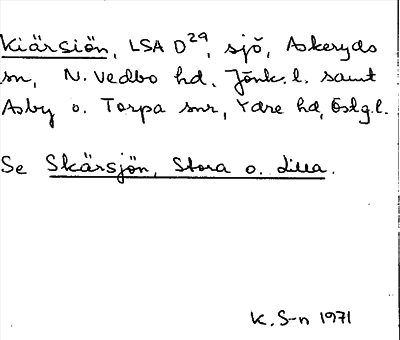 Kiärsiön, LSA D29, sjö, Askeryds
sn, N. Vedbo hd. Jönk. l. samt
Asby o. Torpa snr, Ydre hd, Östg. l.
Se Skärsjön, Stora o. Lilla.
K. S-n 1971